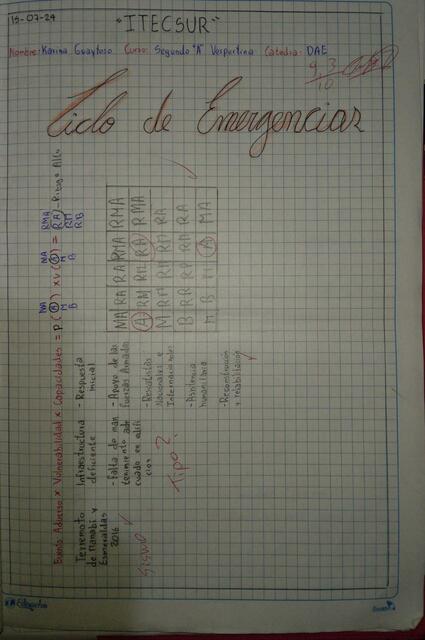 15-07-24
"ITECSUR"
Nombre: Karina Guaytoso Curso: Segundo "A" Vespertina Catedra: DAE
9,3
10
Ciclo de Emergencias
Evento Adverso x Vulnerabilidad x Capacidades = P (A) x V (A) = RA - Riesgo Alto
NA
M
B
NA
M
B
RMA
RA
RM
RB
Terremoto
de Manabí y
Esmeraldas
2016
Sismo
Infraestructura
deficiente
- Falta de man
tenimiento ade
cuado en edifi
cios
Tipo?
- Respuesta
inicial
- Apoyo de las
Fuerzas Armadas
Nacionales e
Internacionales
- Asistencia
humanitaria
- Reconstrucción
y rehabilitación
MA RA RA RMA RMA
A RM RM RA RMA
M RM RM RA
M B M A MA